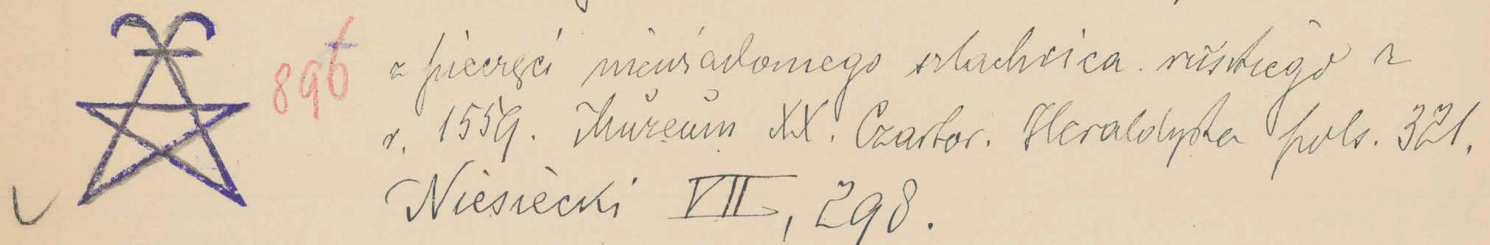 896
z pieczęci niewiadomego szlachcica ruskiego z
r. 1559. Muzeum XX. Czartor. Heraldyka pols. 321.
Niesiecki VII, 298.